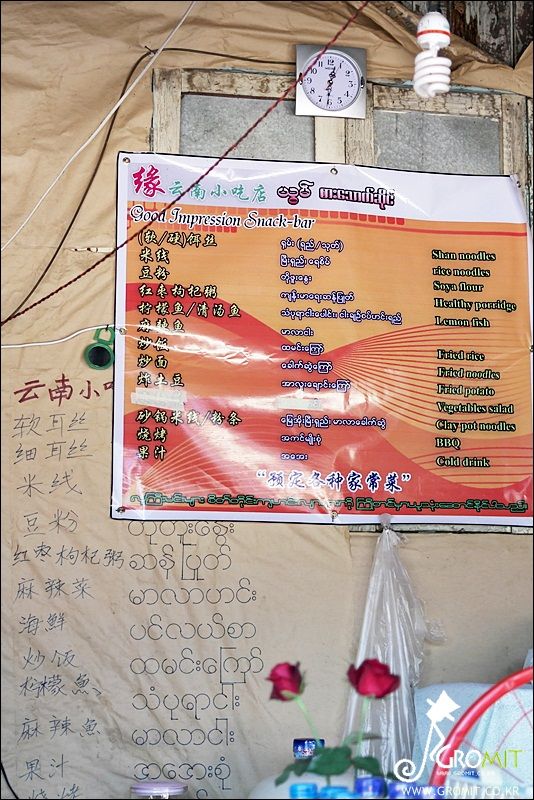 缘 云南小吃店
Good Impression Snack-bar
(软/硬)饵丝 ရှမ်း (ရှည်/သုတ်) Shan noodles
米线 မြီးရှည် ရေစိမ် rice noodles
豆粉 တိုဖူးနွေး Soya flour
红枣枸杞粥 ကျန်းမာရေးဆန်ပြုတ် Healthy porridge
柠檬鱼/清汤鱼 Lemon fish
麻辣鱼 မာလာငါး
炒饭 ထမင်းကြော် Fried rice
炒面 ခေါက်ဆွဲကြော် Fried noodles
炸土豆 အာလူးချောင်းကြော် Fried potato
Vegetables salad
砂锅米线/粉条 မြေအိုးမြီးရှည် မာလာခေါက်ဆွဲ Clay pot noodles
烧烤 အကင်မျိုးစုံ BBQ
果汁 အအေး Cold drink
“预定各种家常菜”
云南小吃
软耳丝
细耳丝
米线
豆粉 တိုဟူးနွေး
红枣枸杞粥 ဆန်ပြုတ်
麻辣菜 မာလာဟင်း
海鮮 ပင်လယ်စာ
炒饭 ထမင်းကြော်
柠檬魚 သံပုရာငါး
麻辣魚 မာလာငါး
果汁 အအေးစုံ
烧烤
GROMIT
WWW.GROMIT.CO.KR
WWW.GROMIT.CO.KR